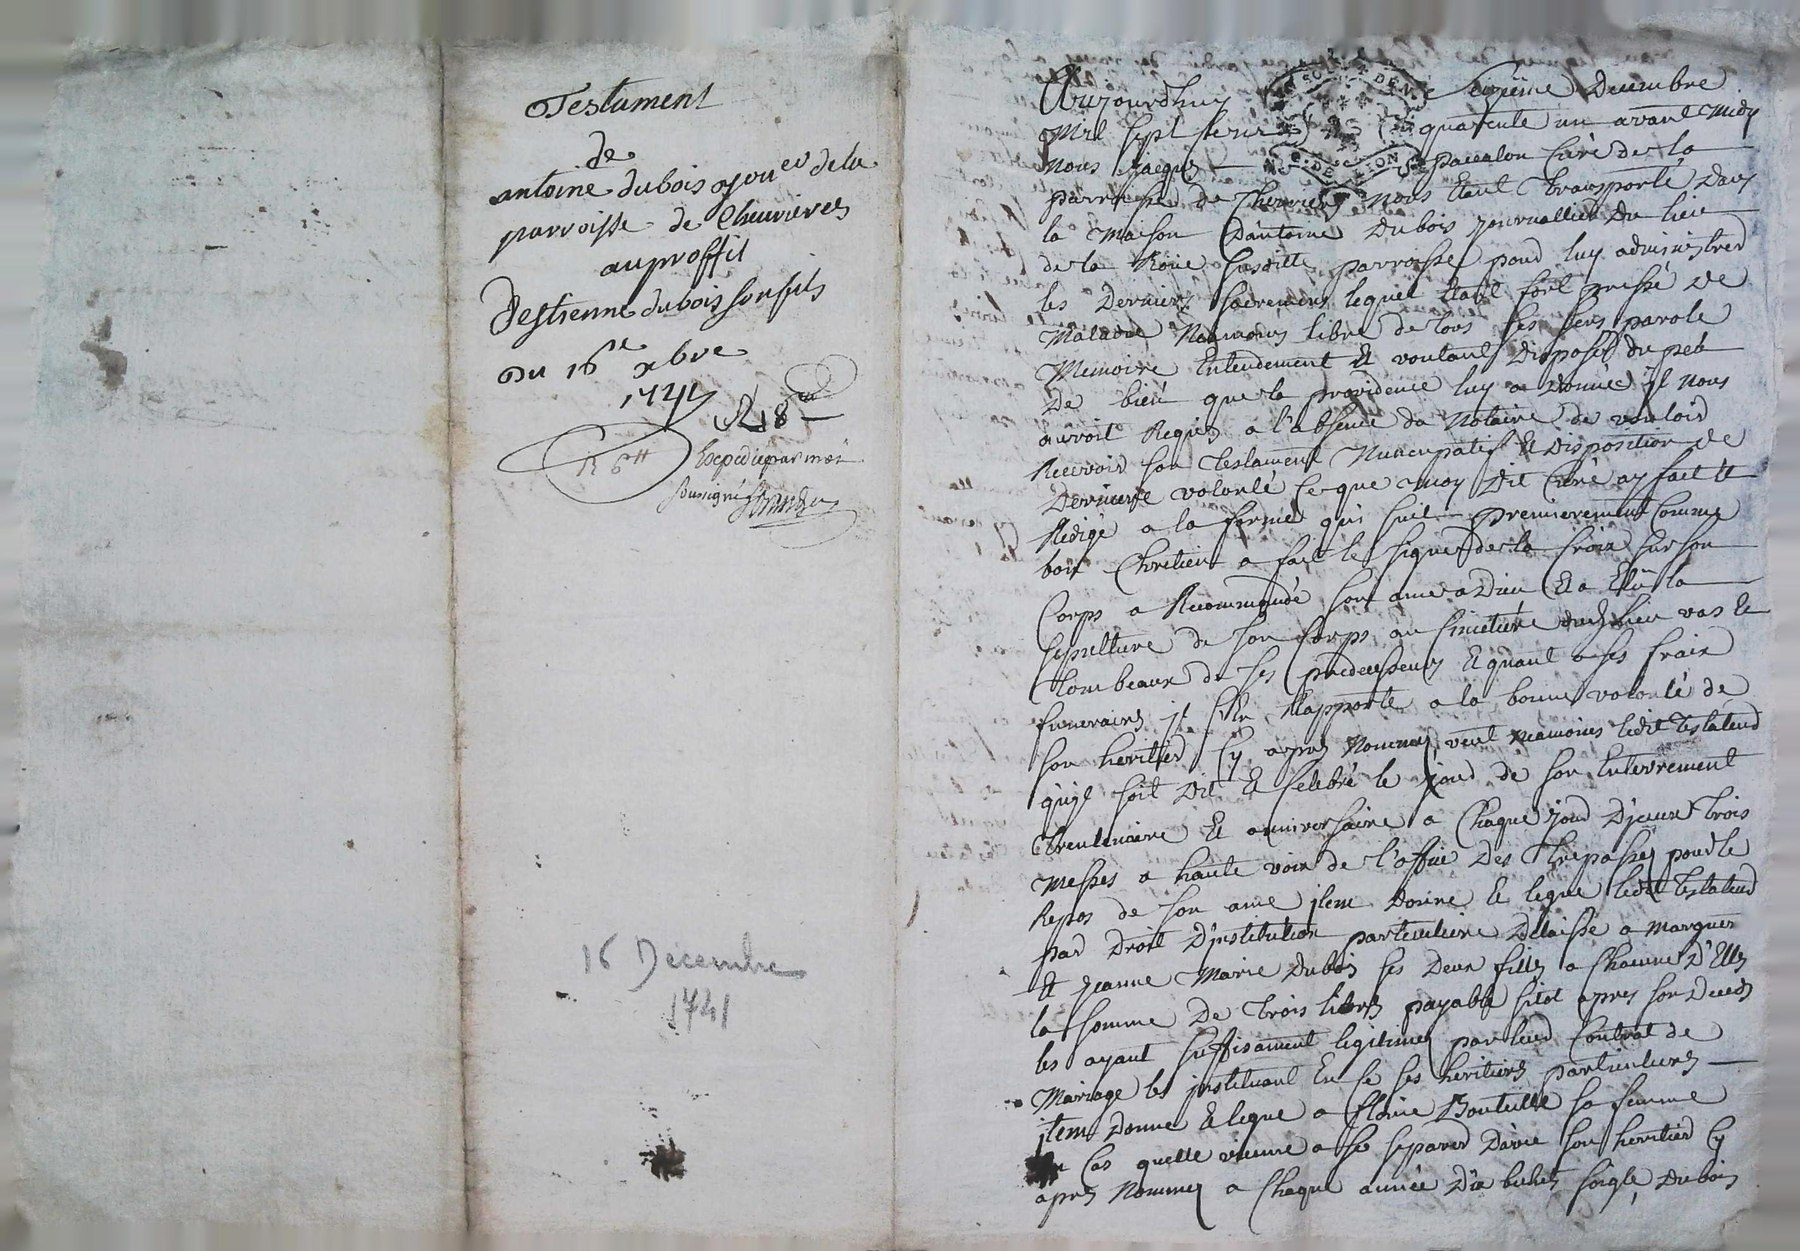 Testament
de
antoine dubois jour^er de la
parroisse de Chevrieres
au proffit
D'estienne dubois son fils
Du 16^e xbre
1741
R 18
R 6^tt
Expedié par moi
soussigné
16 Decembre
1741
Aujourdhuy Seizieme Decembre
Mil sept Cent quarente un avant Midy
Nous Jacques paccalon Curé de la
parroisse de Chevrieres Nous Etant Transporté dans
la Maison D'antoine Dubois journallier du lieu
de la Roue susditte parroisse pour luy administrer
les Derniers sacremens lequel Etant fort pressé de
Maladie Neamoins libre de tous ses sens parole
Memoire Entendement Et voulant Disposer du peu
De bien que la providence luy a donnée jl Nous
auroit Requis a l'absence du Notaire de vouloir
Recevoir son Testament Nuncupatif Et Disposition de
Derniere volonté Ce que Moy Dit Curé ay fait Et
Redigé a la forme qui suit premierement Comme
bon Chretien a fait le signe de la Croix sur son
Corps a Recommandé son ame a Dieu Et a Elû la
sepulture de son Corps au Cimetière dudit lieu vas Et
Tombeaux de ses predecesseurs Et quant a ses fraix
funeraires jl s'En Rapporte a la bonne volonté de
son heritier Cy apres Nommé veut neamoins ledit Testateur
qu'jl soit Dit Et Celebré le jour de son Enterrement
Trentenaire Et anniversaire a Chaque jour D'jceux Trois
Messes a haute voix de l'office Des Trepassés pour le
Repos de son ame jtem Donne Et legue ledit Testateur
par Droit D'jnstitution particuliere Delaisse a Marguer
Et Jeanne Marie Dubois ses Deux filles a Chacune D'Elles
la somme De Trois livres payable sitot apres son Deced
les ayant suffisament legitimé par leur Contrat de
Mariage les jnstituant En Ce ses heritieres particulieres
jtem Donne Et legue a Bouteille sa femme
Cas quelle vienne a se separer D'avec son heritier Cy
apres Nommé a Chaque année Dix bichets soigle, Dubois